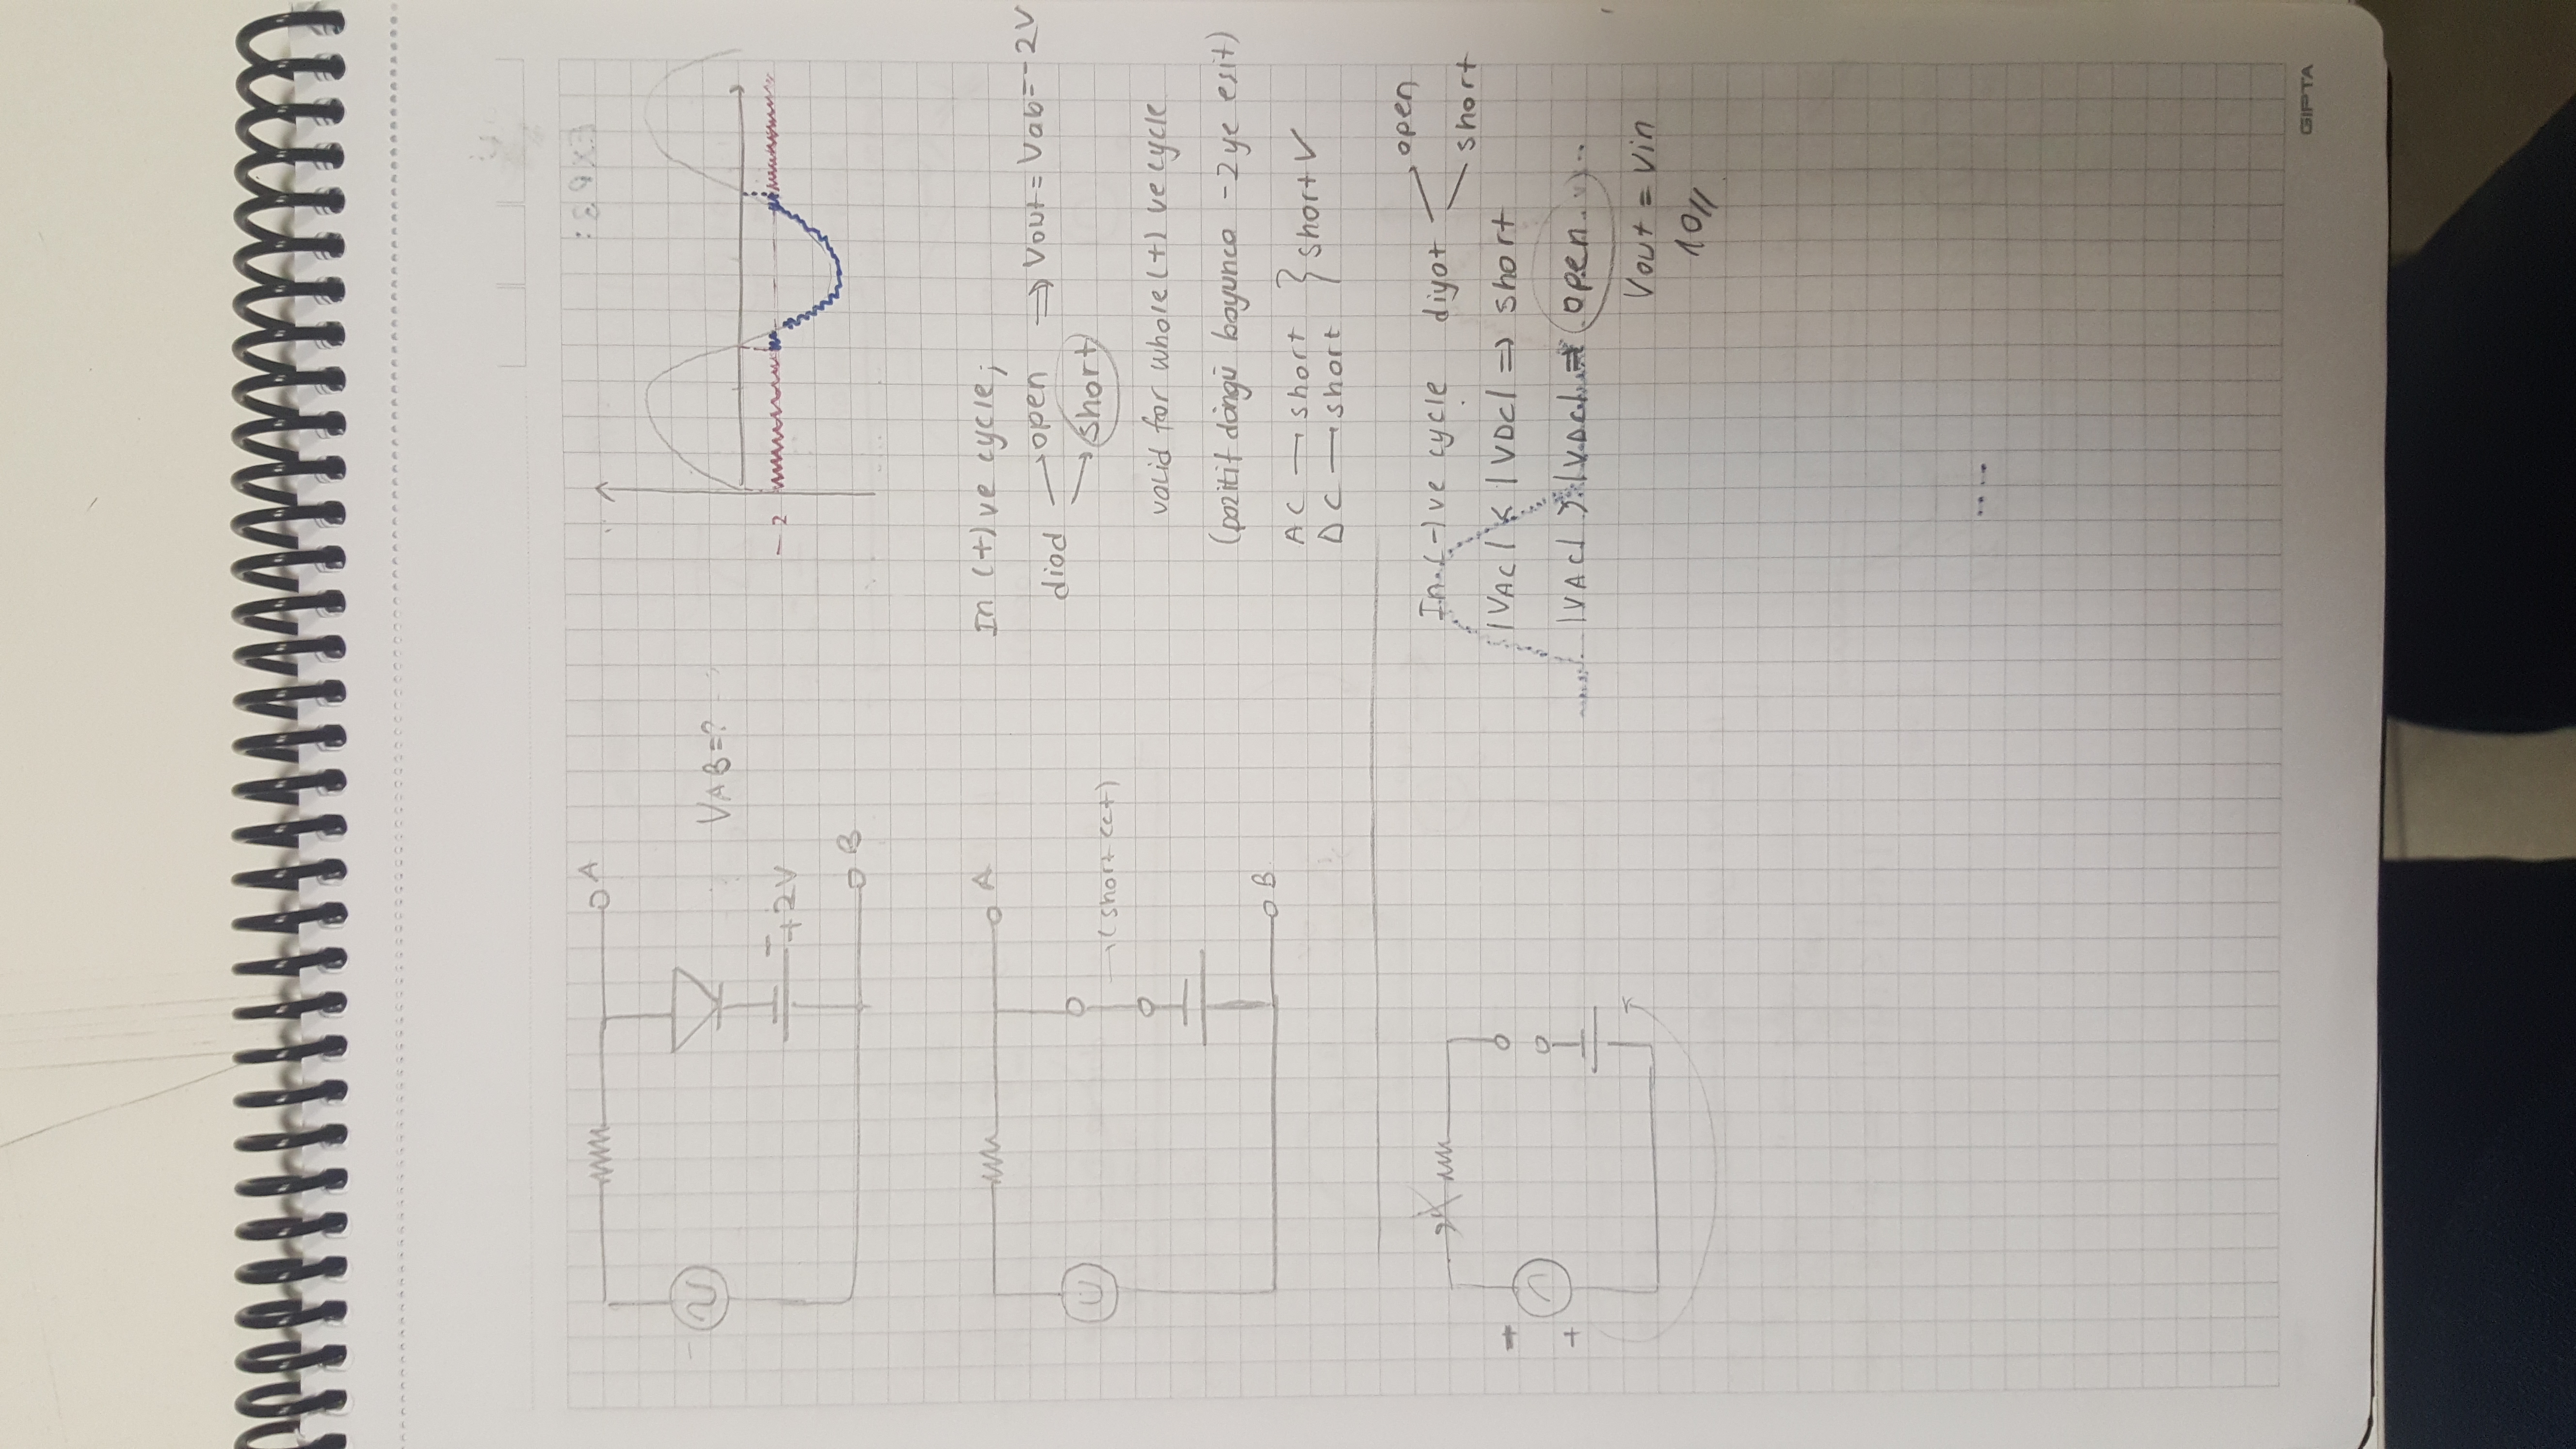 A
EXP 3:
VAB=?
-2
-
+2V
B
A
In (+)ve cycle;
diod
open
short
⇒ Vout = Vab = -2V
→(short cct)
valid for whole (+) ve cycle
(pozitif döngü boyunca -2ye esit)
B
AC → short
DC → short
} short V
In (-)ve cycle diyot
open
short
|VAC| < |VDC| ⇒ short
+
|VAC| > |VDC| ⇒ open
Vout = Vin
10//
GIPTA